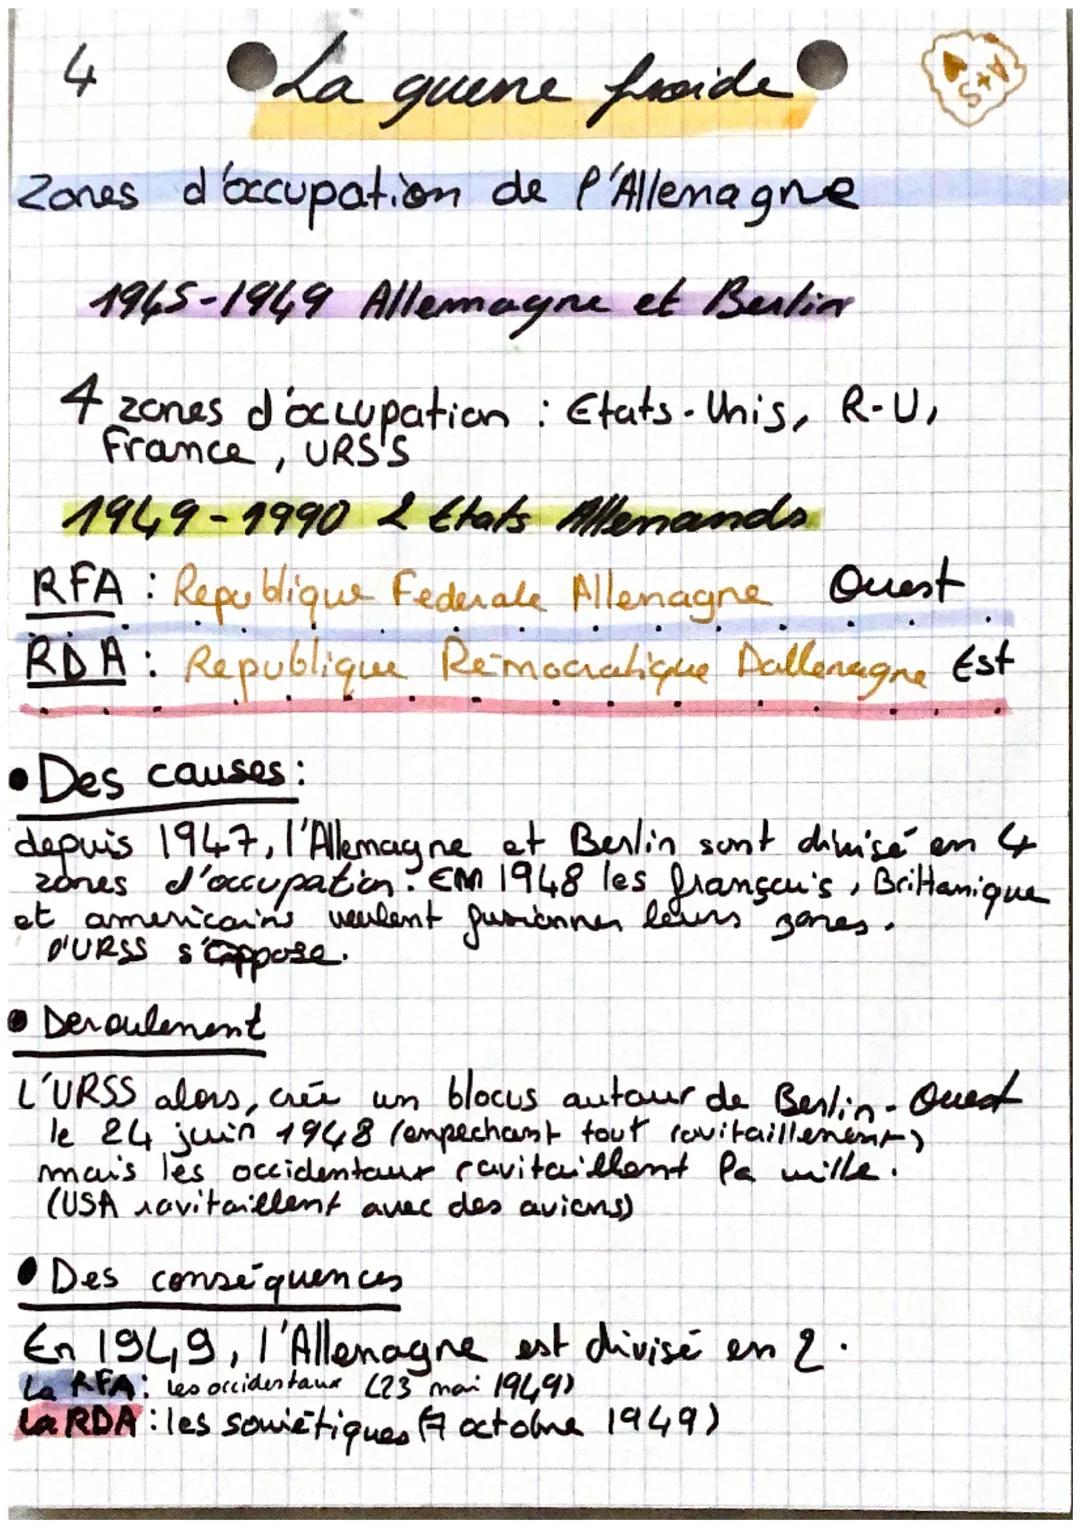 4 La guerre froide
Zones d'occupation de l'Allemagne
1945-1949 Allemagne et Berlin
4 zones d'occupation : Etats-Unis, R-U,
France, URSS
1949-1990 2 Etats Allemands
RFA : Republique Federale Allemagne Ouest
RDA : Republique Remocratique Dallemagne Est
• Des causes :
depuis 1947, l'Allemagne et Berlin sont divisé en 4
zones d'occupation. EM 1948 les français, Brittanique
et americains veulent fusionner leurs zones.
l'URSS s'oppose.
• Deroulement
L'URSS alors, crée un blocus autour de Berlin-Ouest
le 24 juin 1948 (empechant tout ravitaillement)
mais les occidentaux ravitaillent la ville.
(USA ravitaillent avec des avions)
• Des conséquences
En 1949, l'Allemagne est divisé en 2.
La RFA : les occidentaux (23 mai 1949)
La RDA : les soviétiques (7 octobre 1949)